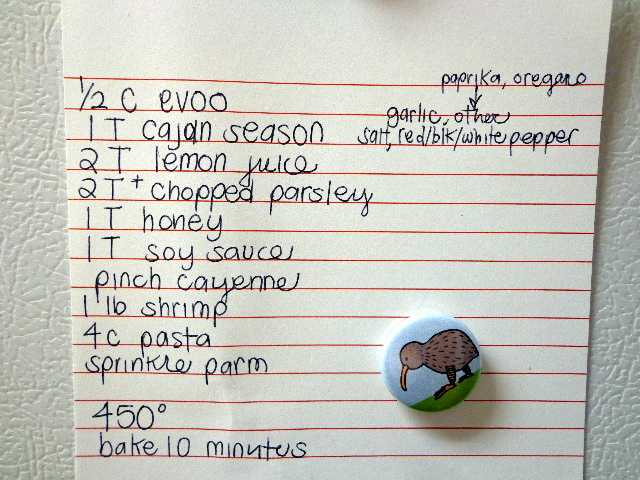 paprika, oregano
garlic, other
salt, red/blk/white pepper
1/2 C evoo
1 T cajan season
2 T lemon juice
2 T+ chopped parsley
1 T honey
1 T soy sauce
pinch cayenne
1 lb shrimp
4c pasta
sprinkle parm
450°
bake 10 minutes